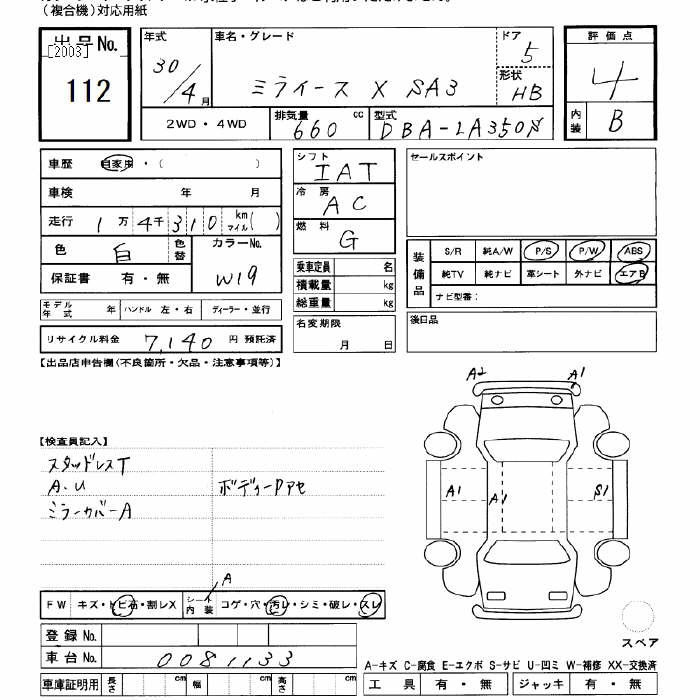 (複合機)対応用紙
出品No.
[2003]
112
年式
30/4月
車名・グレード
ミライース X SA3
ドア
5
形状
HB
2WD・4WD
排気量
660 cc
型式
DBA-LA350S
評価点
4
内装
B
車歴 自家用・( )
車検 年 月
走行 1万4千310 km マイル( )
色 白 色替
カラーNo.
W19
保証書 有・無
モデル年式 年 ハンドル 左・右 ディーラー・並行
リサイクル料金 7,140 円 預託済
シフト
IAT
冷房
AC
燃料
G
乗車定員 名
積載量 kg
総重量 kg
名変期限
月 日
セールスポイント
装備品
S/R 純A/W P/S P/W ABS
純TV 純ナビ 革シート 外ナビ エアB
ナビ型番:
後日品
【出品店申告欄(不良箇所・欠品・注意事項等)】
【検査員記入】
スタッドレスT
A・U
ミラーカバーA
A2 A1
A1 A1 S1
A
FW キズ・トビ石・割レX シート内装 コゲ・穴・汚レ・シミ・破レ・スレ
登録No.
車台No. 0081133
スペア
A-キズ C-腐食 E-エクボ S-サビ U-凹ミ W-補修 XX-交換済
車庫証明用 長さ cm 幅 cm 高さ cm
工具 有・無 ジャッキ 有・無